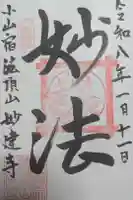 令和八年一月十一日
妙法
小山宿 法頂山 妙建寺